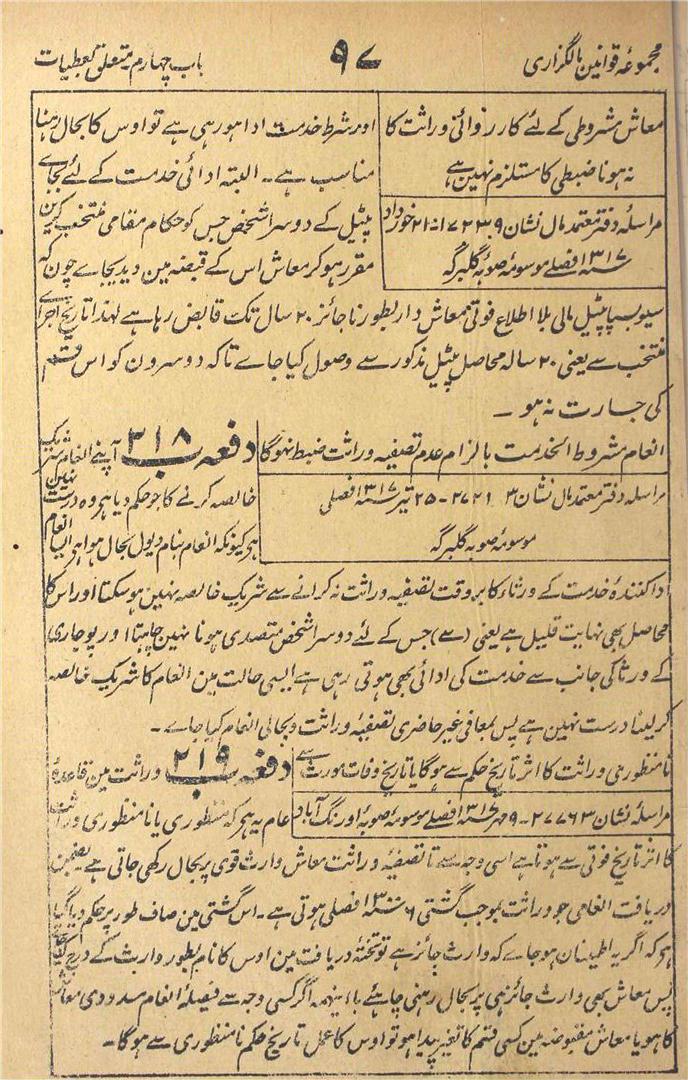 مجموعہ قوانین مالگزاری
۹۷
باب چہارم متعلق بعطیات
معاش مشروطی کے لئے کارروائی وراثت کا
نہ ہونا ضبطی کا مستلزم نہین ہے
مراسلۂ دفتر معتمد مال نشان ۷۲۳۹ ۲۱ خورداد
۱۳۱۷ سنہ افصلے موسومۂ صوبۂ گلبرگہ
اور شرط خدمت ادا ہو رہی ہے تو اوس کا بحال رہنا
مناسب ہے ۔ البتہ ادائی خدمت کے لئے بجائے
پٹیل کے دوسرا شخص جس کو حکام مقامی منتخب کرین
مقرر ہو کر معاش اس کے قبضہ مین دیدیجاے چون کہ
سیوبسپا پٹیل مالی بلا اطلاع فوتی معاش دار بطور ناجائز ۲۰ سال تک قابض رہا ہے لہذا تاریخ اجرائے
منتخب سے یعنی ۲۰ سالہ محاصل پٹیل مذکور سے وصول کیا جاے تاکہ دوسرون کو اس قسم
کی جسارت نہ ہو ۔
انعام مشروط الخدمت بالزام عدم تصفیہ وراثت ضبط نہوگا
مراسلہ دفتر معتمد مال نشان ۲۷۲۱ - ۲۵ تیر ۱۳۱۷ سنہ افصلی
موسومۂ صوبہ گلبرگہ
دفعہ ۲۱۸ ب آپنے انعام شریک
خالصہ کرنے کا جو حکم دیا ہے وہ درست نہین
ہے کیونکہ انعام بنام دیول بحال ہوا ہے اب انعام
ادا کنندۂ خدمت کے ورثاء کا بر وقت تصفیہ وراثت نہ کرانے سے شریک خالصہ نہین ہو سکتا اور اس کا
محاصل بھی نہایت قلیل ہے یعنی (سے) جس کے لئے دوسرا شخص متصدی ہونا نہین چاہتا اور پوجاری
کے ورثا کی جانب سے خدمت کی ادائی بھی ہوتی رہی ہے ایسی حالت مین انعام کا شریک خالصہ
کر لینا درست نہین ہے پس بمعافی غیر حاضری تصفیۂ وراثت و بحالی انعام کیا جاے ۔
نامنظوری وراثت کا اثر تاریخ حکم سے ہوگا یا تاریخ وفات مورث سے
مراسلۂ نشان ۲۷۷۶۳ - ۹ مہر ۱۳۱۷ سنہ افصلے موسومۂ صوبۂ اورنگ آباد
دفعہ ۲۱۹ ب وراثت مین قاعدۂ
عام یہ ہے کہ منظوری یا نامنظوری وراثت
کا اثر تاریخ فوتی سے ہوتا ہے اسی وجہ سے تا تصفیۂ وراثت معاش وارث قوی پر بحال رکھی جاتی ہے بضمن
دریافت انعامی جو وراثت بموجب گشتی ۶ سنہ ۱۳۰ افصلی ہوتی ہے ۔ اس گشتی مین صاف طور پر حکم دیا گیا
ہے کہ اگر یہ اطمینان ہو جاے کہ وارث جائز ہے تو تختۂ دریافت مین اوس کا نام بطور وارث کے درج
پس معاش بھی وارث جائز ہی پر بحال رہنی چاہئے با اینہمہ اگر کسی وجہ سے فیصلۂ انعام مسدودی معاش
کا ہو یا معاش مقبوضہ مین کسی قسم کا تغیر پیدا ہو تو اوس کا عمل تاریخ حکم نامنظوری سے ہوگا ۔